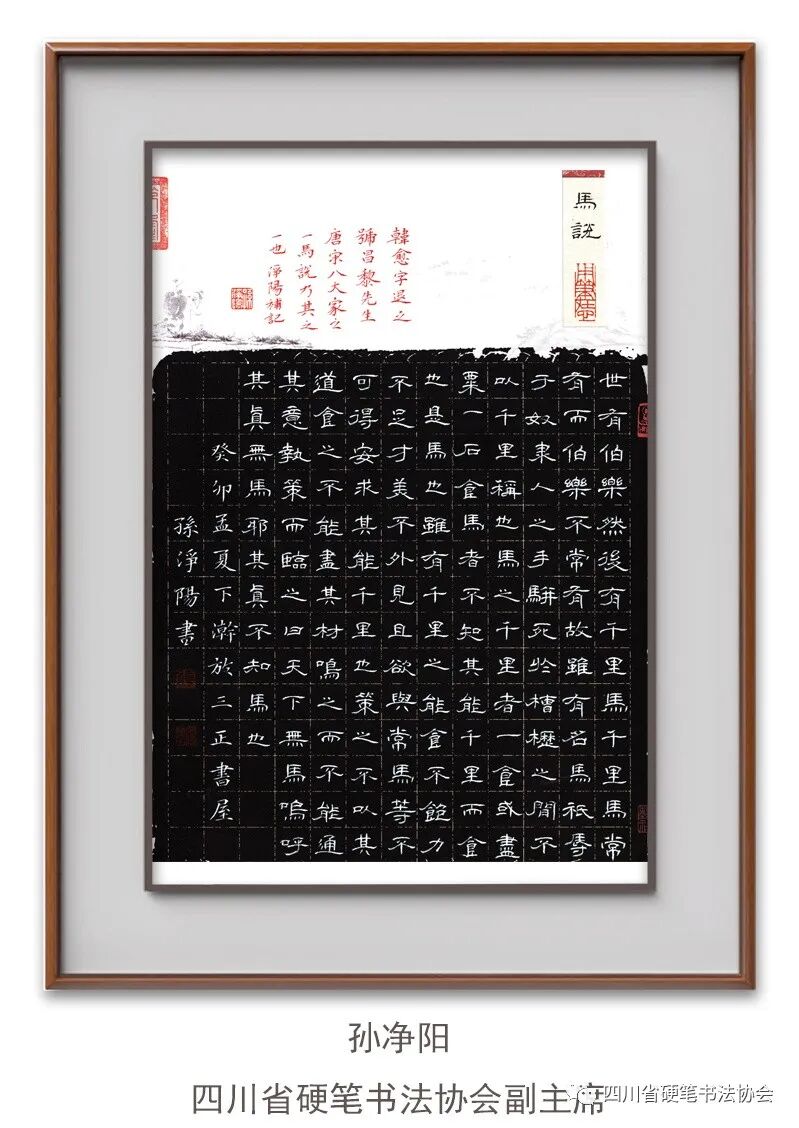 馬說
韓愈字退之
號昌黎先生
唐宋八大家之
一馬說乃其之
一也淨陽補記
世有伯樂然後有千里馬千里馬常
有而伯樂不常有故雖有名馬祇辱
于奴隶人之手駢死於槽櫪之間不
以千里稱也馬之千里者一食或盡
粟一石食馬者不知其能千里而食
也是馬也雖有千里之能食不飽力
不足才美不外見且欲與常馬等不
可得安求其能千里也策之不以其
道食之不能盡其材鳴之而不能通
其意執策而臨之曰天下無馬嗚呼
其眞無馬耶其眞不知馬也
癸卯孟夏下澣於三正書屋
孫淨陽書
孙净阳
四川省硬笔书法协会副主席
四川省硬笔书法协会